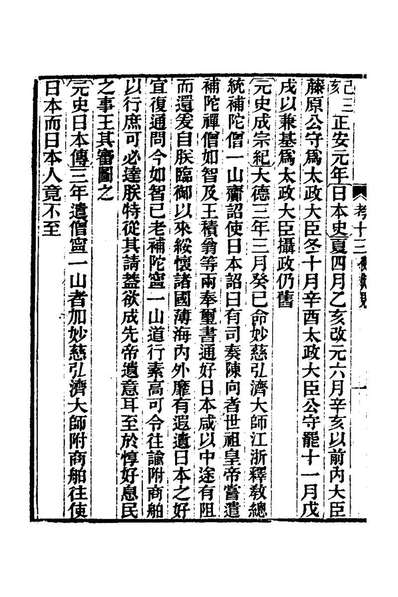 考十三 一
己亥三正安元年日本史夏四月乙亥改元六月辛亥以前內大臣
藤原公守爲太政大臣冬十月辛酉太政大臣公守罷十一月戊
戌以兼基爲太政大臣攝政仍舊
元史成宗紀大德三年三月癸巳命妙慈弘濟大師江浙釋教總
統補陀僧一山齎詔使日本詔曰有司奏陳向者世祖皇帝嘗遣
補陀禪僧如智及王積翁等兩奉璽書通好日本咸以中途有阻
而還爰自朕臨御以來綏懷諸國薄海內外靡有遐遺日本之好
宜復通問今如智已老補陀甯一山道行素高可令往諭附商舶
以行庶可必達朕特從其請蓋欲成先帝遺意耳至於惇好息民
之事王其審圖之
元史日本傳三年遣僧甯一山者加妙慈弘濟大師附商舶往使
日本而日本人竟不至